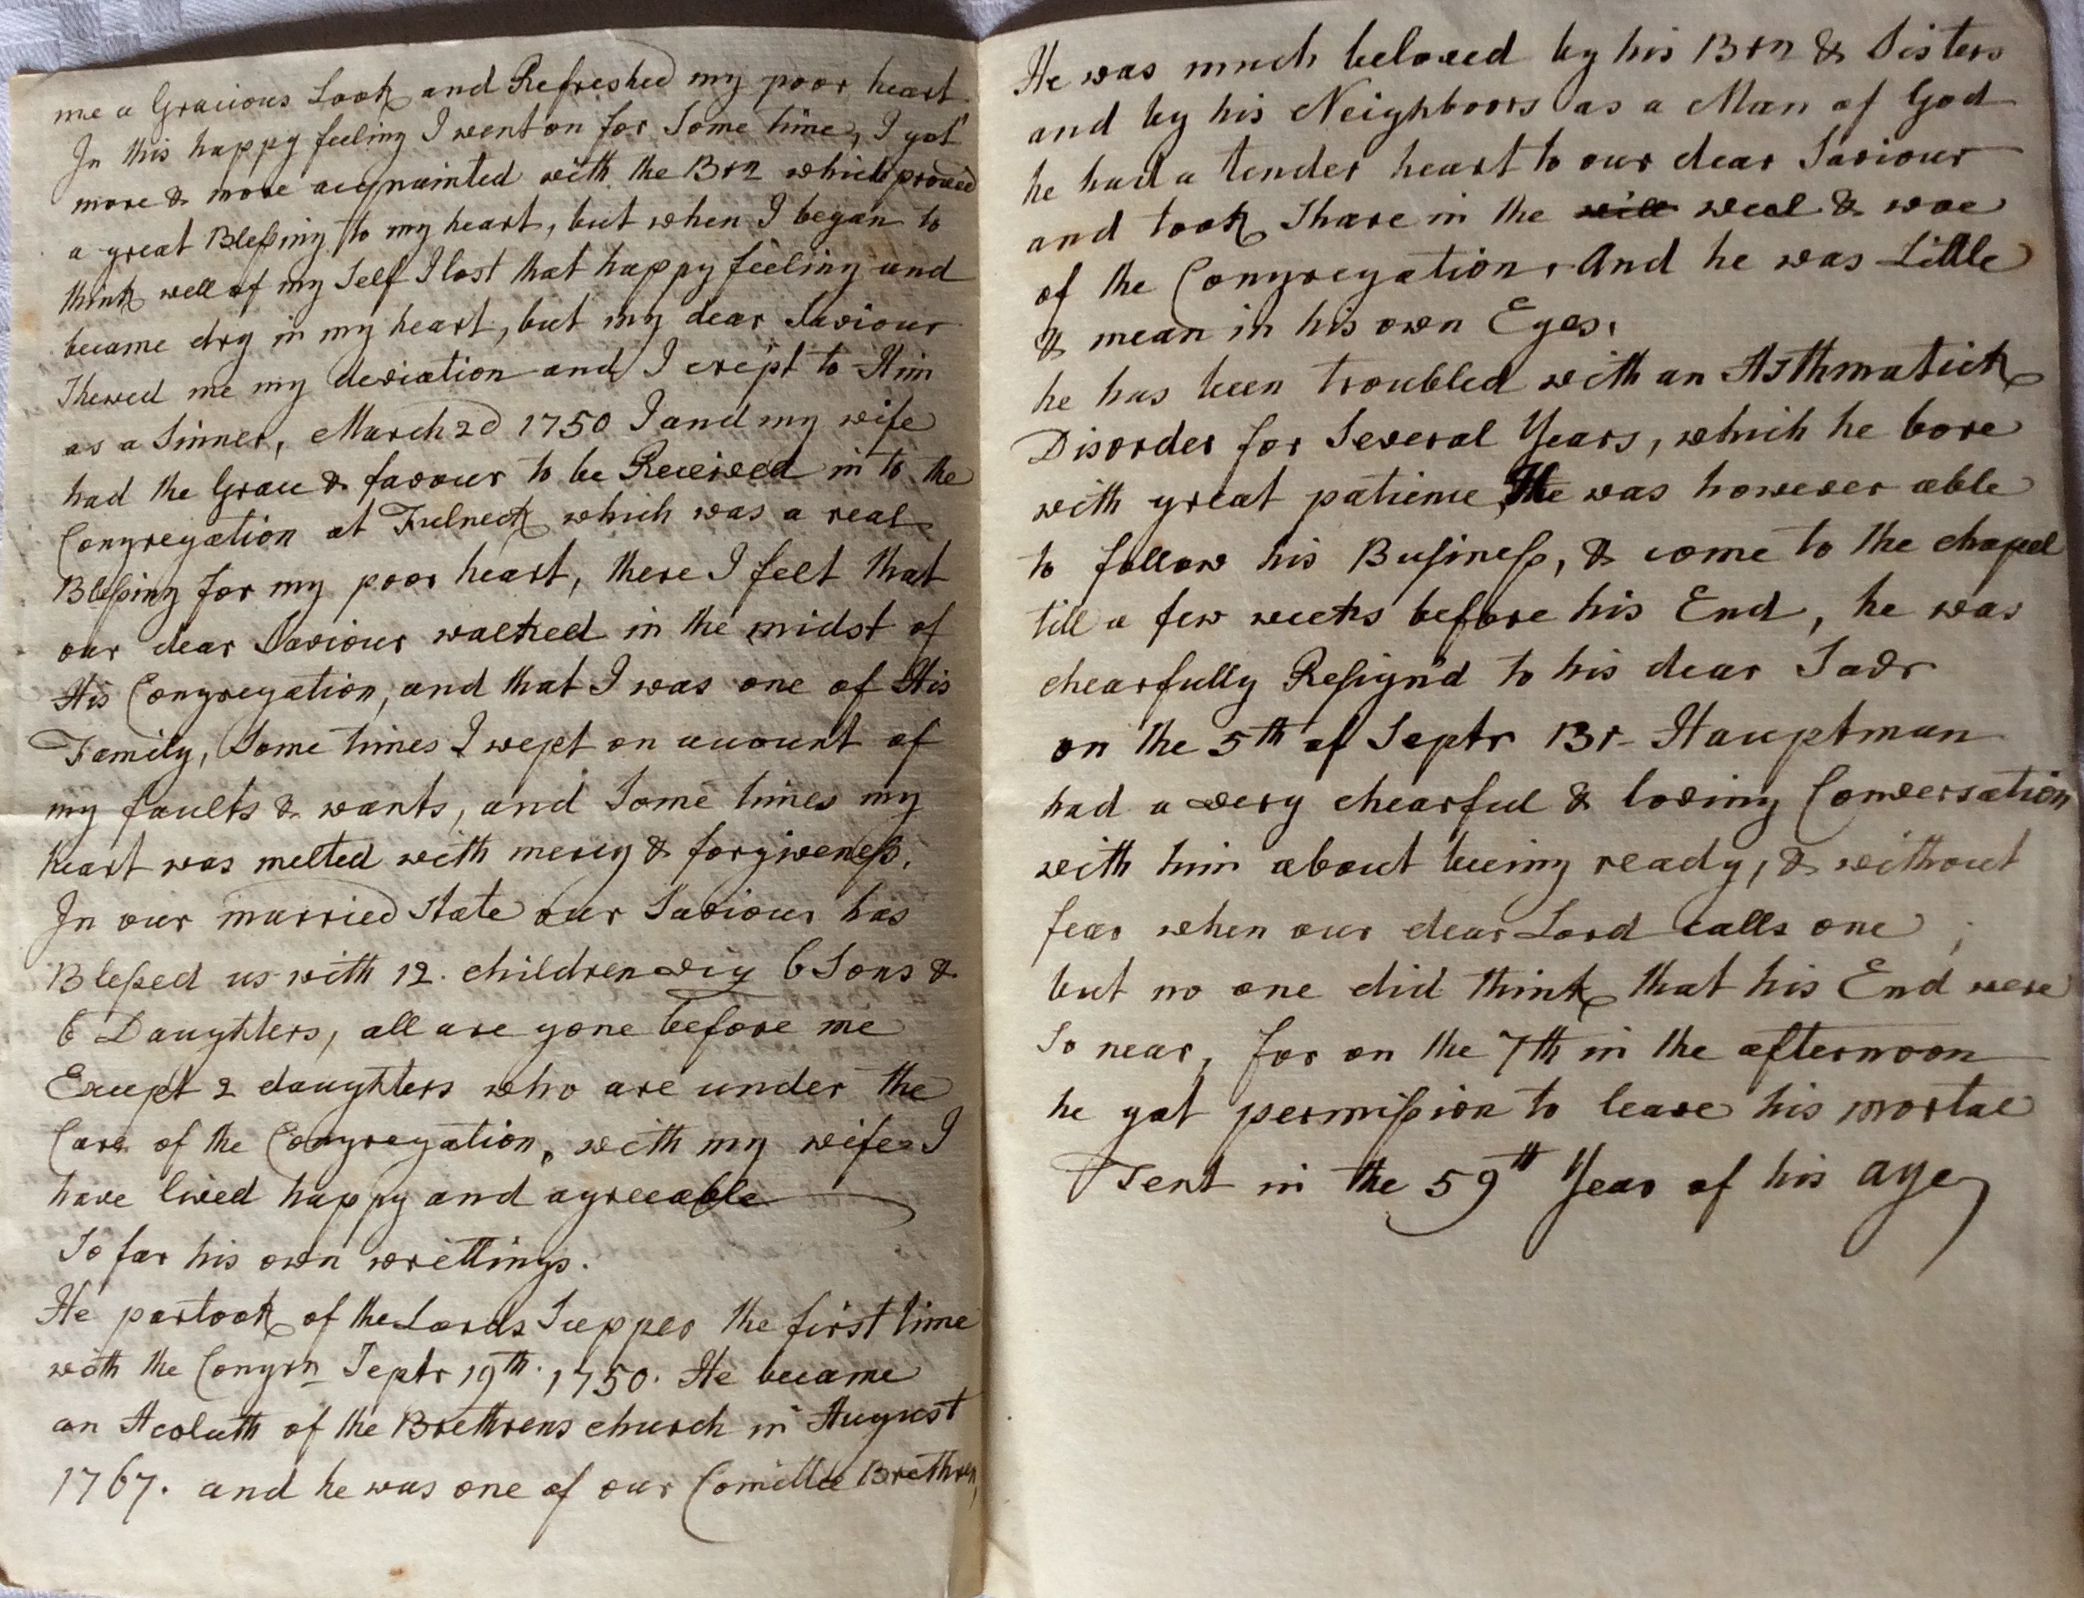 me a Gracious Look and Refreshed my poor heart
In this happy feeling I went on for Some time, I got
more & more acquainted with the Brn which proved
a great Blessing to my heart, but when I began to
think well of my Self I lost that happy feeling and
became dry in my heart, but my dear Saviour
Shewed me my deviation and I crept to Him
as a Sinner, March 2d 1750 I and my wife
had the Grace & favour to be Received in to the
Congregation at Fulneck which was a real
Blessing for my poor heart, there I felt that
our dear Saviour walked in the midst of
His Congregation, and that I was one of His
Family, Some times I wept on account of
my faults & wants, and Some times my
heart was melted with mercy & forgiveness,
In our married State our Saviour has
Blessed us with 12. children viz 6 Sons &
6 Daughters, all are gone before me
Except 2 daughters who are under the
Care of the Congregation, with my wife I
have lived happy and agreeable
So far his own writtings.
He partook of the Lords Supper the first time
with the Congrn Septr 19th. 1750. He became
an Acoluth of the Brethrens church in August
1767. and he was one of our Comittee Brethren,
He was much beloved by his Brn & Sisters
and by his Neighboors as a Man of God
he had a tender heart to our dear Saviour
and took Share in the weal & woe
of the Congregation, And he was Little
& mean in his own Eyes,
he has been troubled with an Asthmatick
Disorder for Several Years, which he bore
with great patience, He was however able
to follow his Business, & come to the chapel
till a few weeks before his End, he was
chearfully Resign'd to his dear Savr
on the 5th of Septr Br- Hauptman
had a very chearful & loving Conversation
with him about being ready, & without
fear when our dear Lord calls one ;
but no one did think that his End were
So near, for on the 7th in the afternoon
he got permission to leave his mortal
Tent in the 59th Year of his age